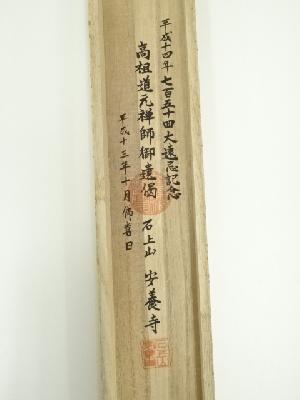 平成十四年 七百五十四大遠忌記念
高祖道元禅師御遺偈 石上山 安養寺
平成十三年十月 吉日